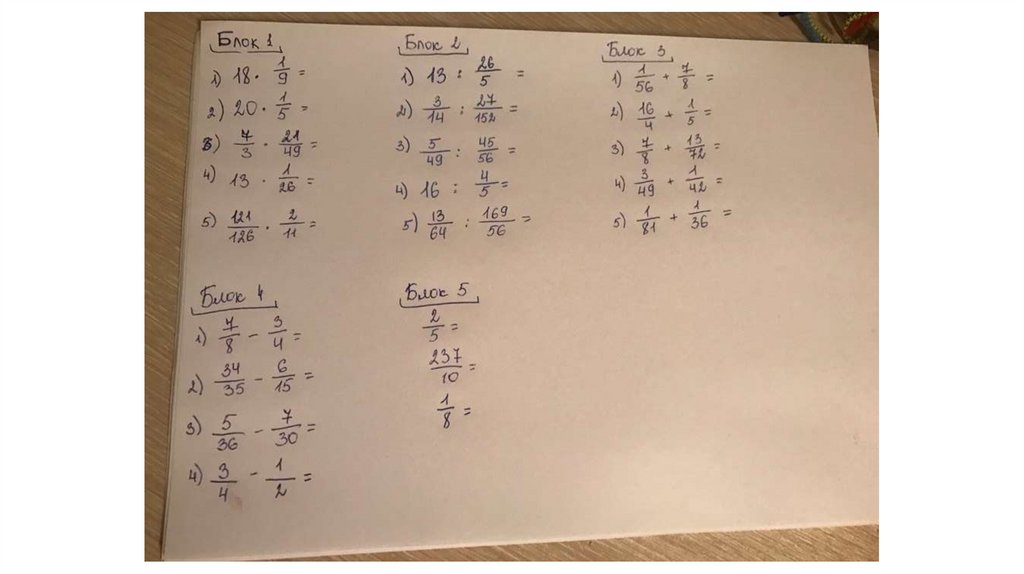 Блок 1
1) 18 · 1/9 =
2) 20 · 1/5 =
3) 7/3 · 21/49 =
4) 13 · 1/26 =
5) 121/126 · 2/11 =
Блок 2
1) 13 : 26/5 =
2) 3/14 : 27/152 =
3) 5/49 : 45/56 =
4) 16 : 4/5 =
5) 13/64 : 169/56 =
Блок 3
1) 1/56 + 7/8 =
2) 16/4 + 1/5 =
3) 7/8 + 13/72 =
4) 3/49 + 1/42 =
5) 1/81 + 1/36 =
Блок 4
1) 7/8 - 3/4 =
2) 34/35 - 6/15 =
3) 5/36 - 7/30 =
4) 3/4 - 1/2 =
Блок 5
2/5 =
237/10 =
1/8 =